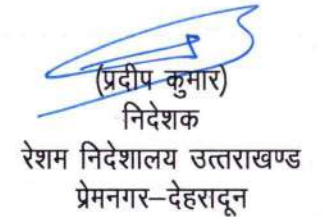 (प्रदीप कुमार)
निदेशक
रेशम निदेशालय उत्तराखण्ड
प्रेमनगर–देहरादून